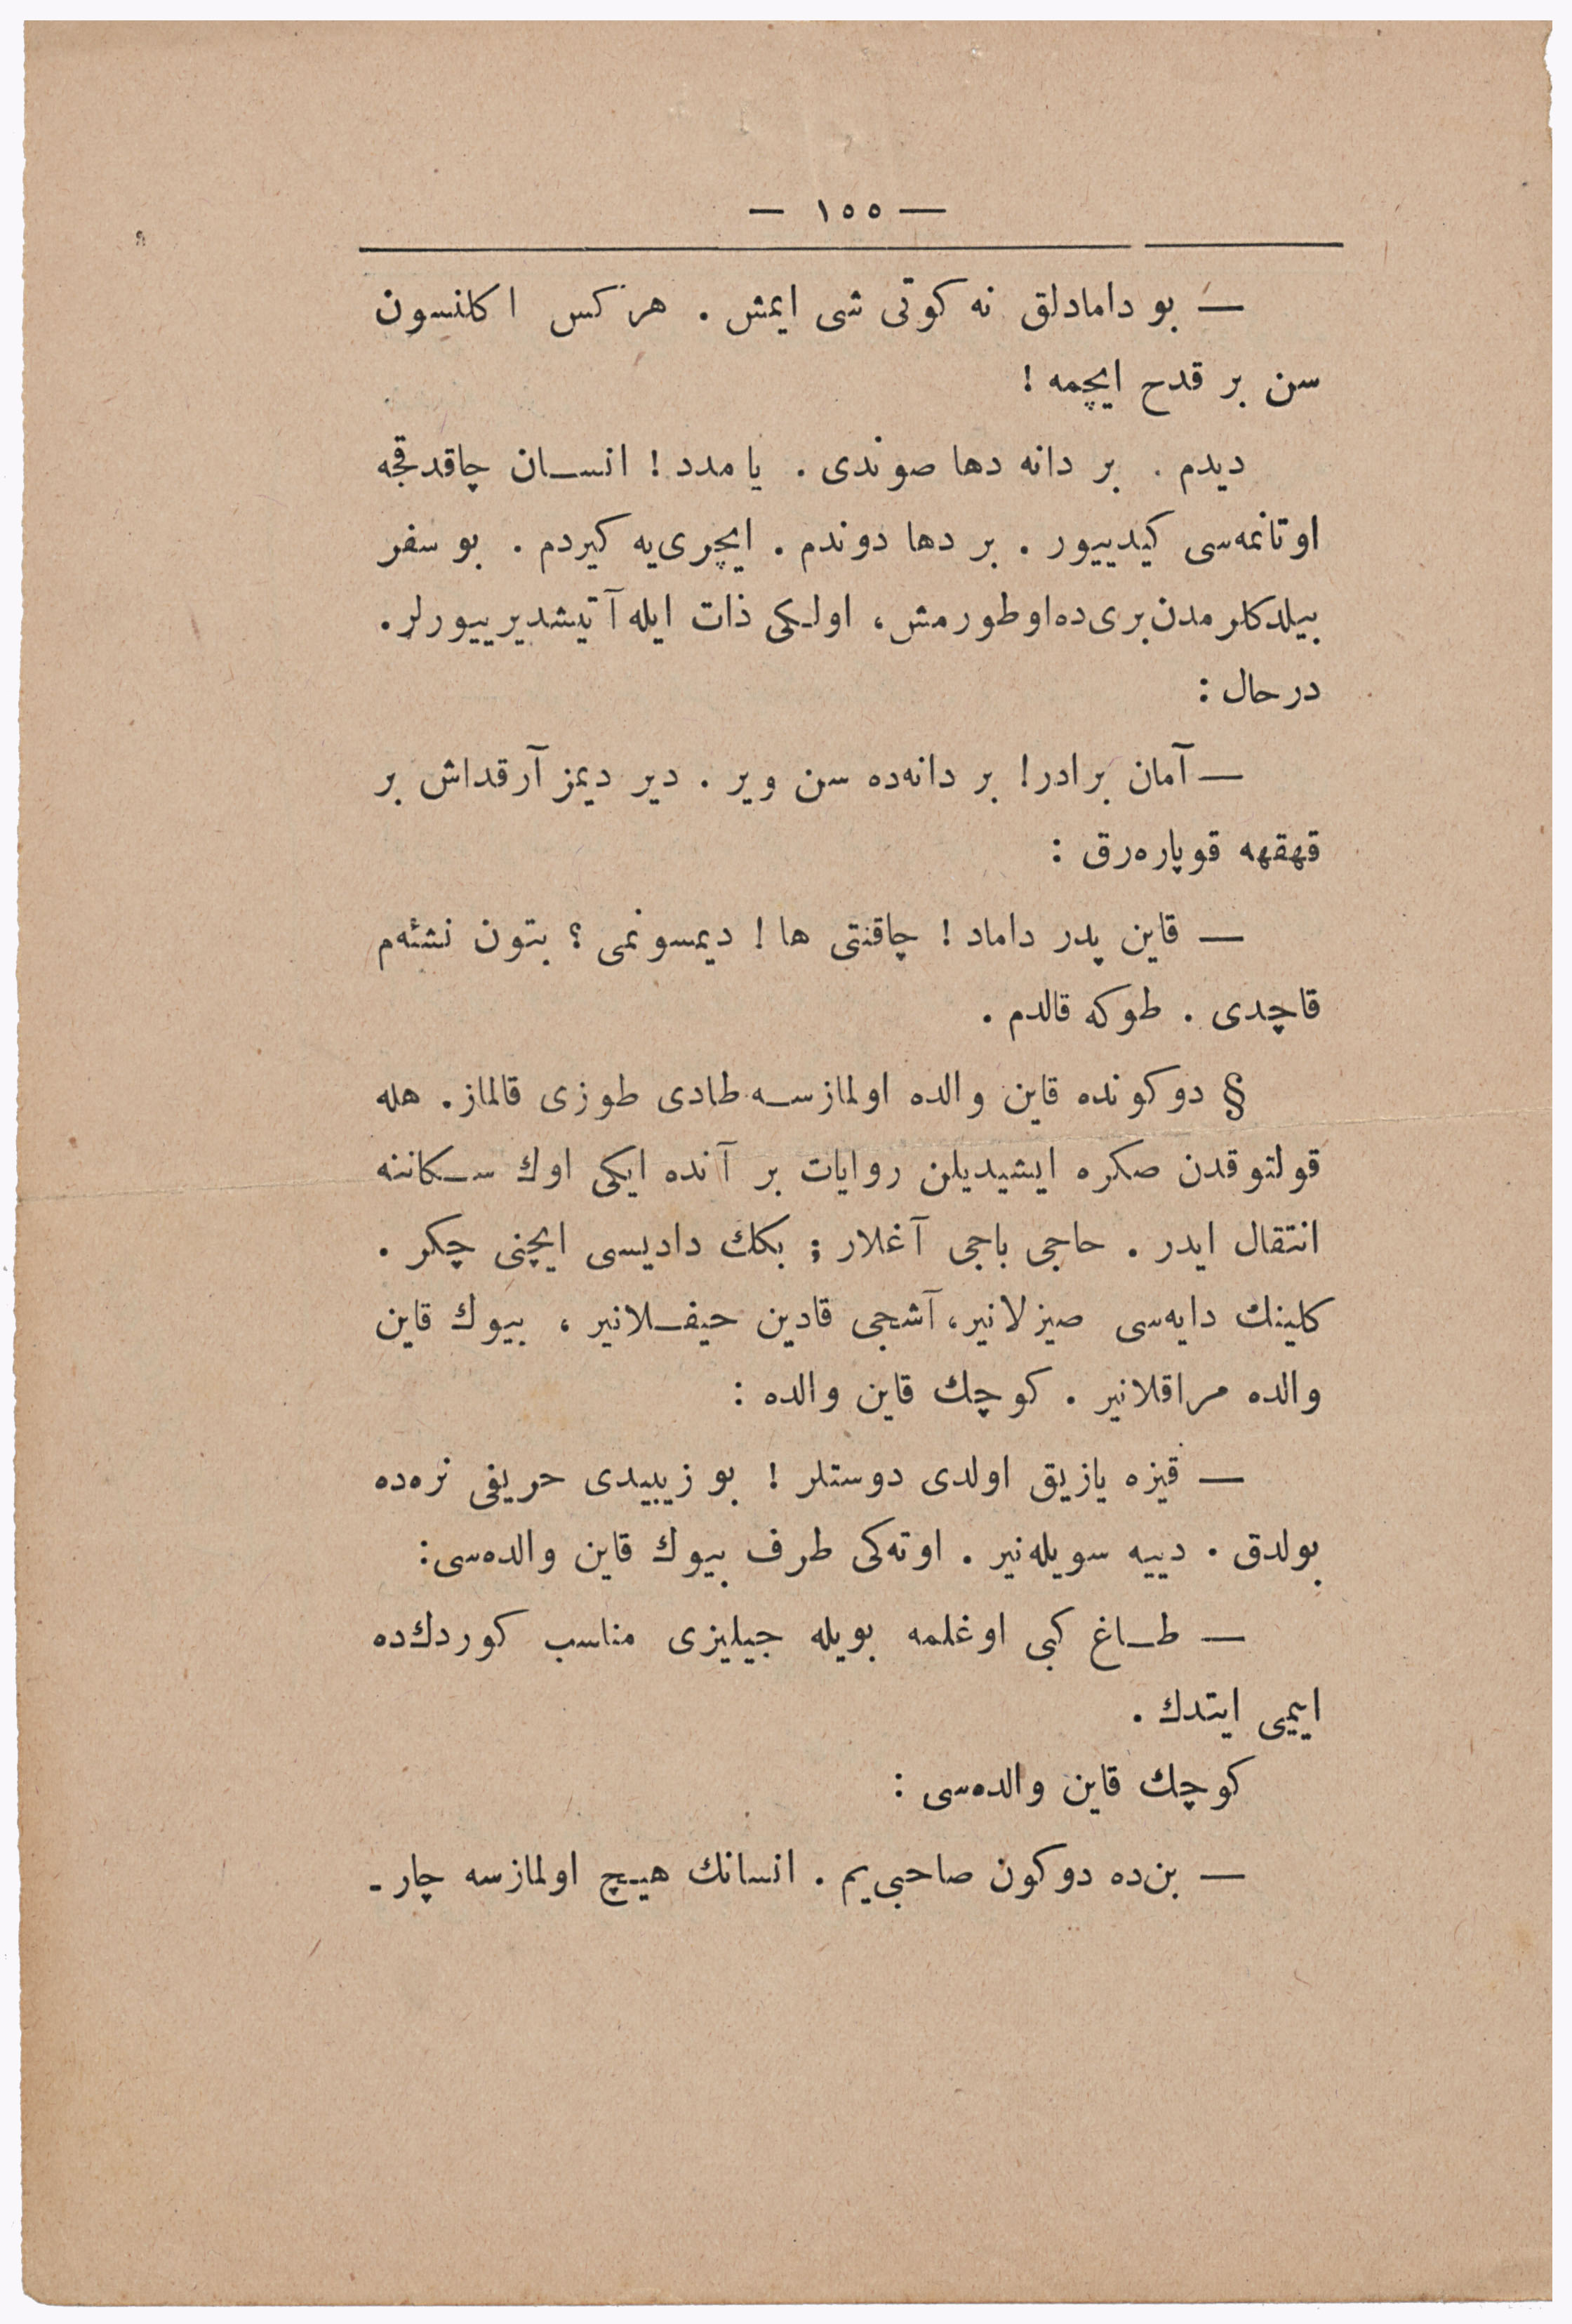 — ١٥٥ —
— بو دامادلق نه كوتی شی ایمش . هر كس اكلنسون
سن بر قدح ایچمه !
دیدم . بر دانه دها صوندی . یا مدد ! انسـان چاقدقجه
اوتانمه‌سی كیدییور . بر دها دوندم . ایچری‌یه كیردم . بو سفر
بیلدكلرمدن بری‌ده اوطورمش، اولـكی ذات ایله آتیشدیرییورلر.
درحال :
— آمان برادر! بر دانه‌ده سن ویر . دیر دیمز آرقداش بر
قهقهه قوپاره‌رق :
— قاین پدر داماد ! چاقنتی ها ! دیمسونمی ؟ بتون نشئه‌م
قاچدی . طوكه قالدم .
§ دوكونده قاین والده اولمازسـه طادی طوزی قالماز. هله
قولتوقدن صكره ایشیدیلن روایات بر آنده ایكی اوك سـكاننه
انتقال ایدر . حاجی باجی آغلار ; بكك دادیسی ایچنی چكر .
كلینك دایه‌سی صیزلانیر، آشجی قادین حیفـلانیر ، بیوك قاین
والده مراقلانیر . كوچك قاین والده :
— قیزه یازیق اولدی دوستلر ! بو زیبیدی حریفی نره‌ده
بولدق . دییه سویله‌نیر . اوته‌كی طرف بیوك قاین والده‌سی:
— طـاغ كبی اوغلمه بویله جیلیزی مناسب كوردك‌ده
اییمی ایتدك .
كوچك قاین والده‌سی :
— بن‌ده دوكون صاحبی‌یم . انسانك هیـچ اولمازسه چار-